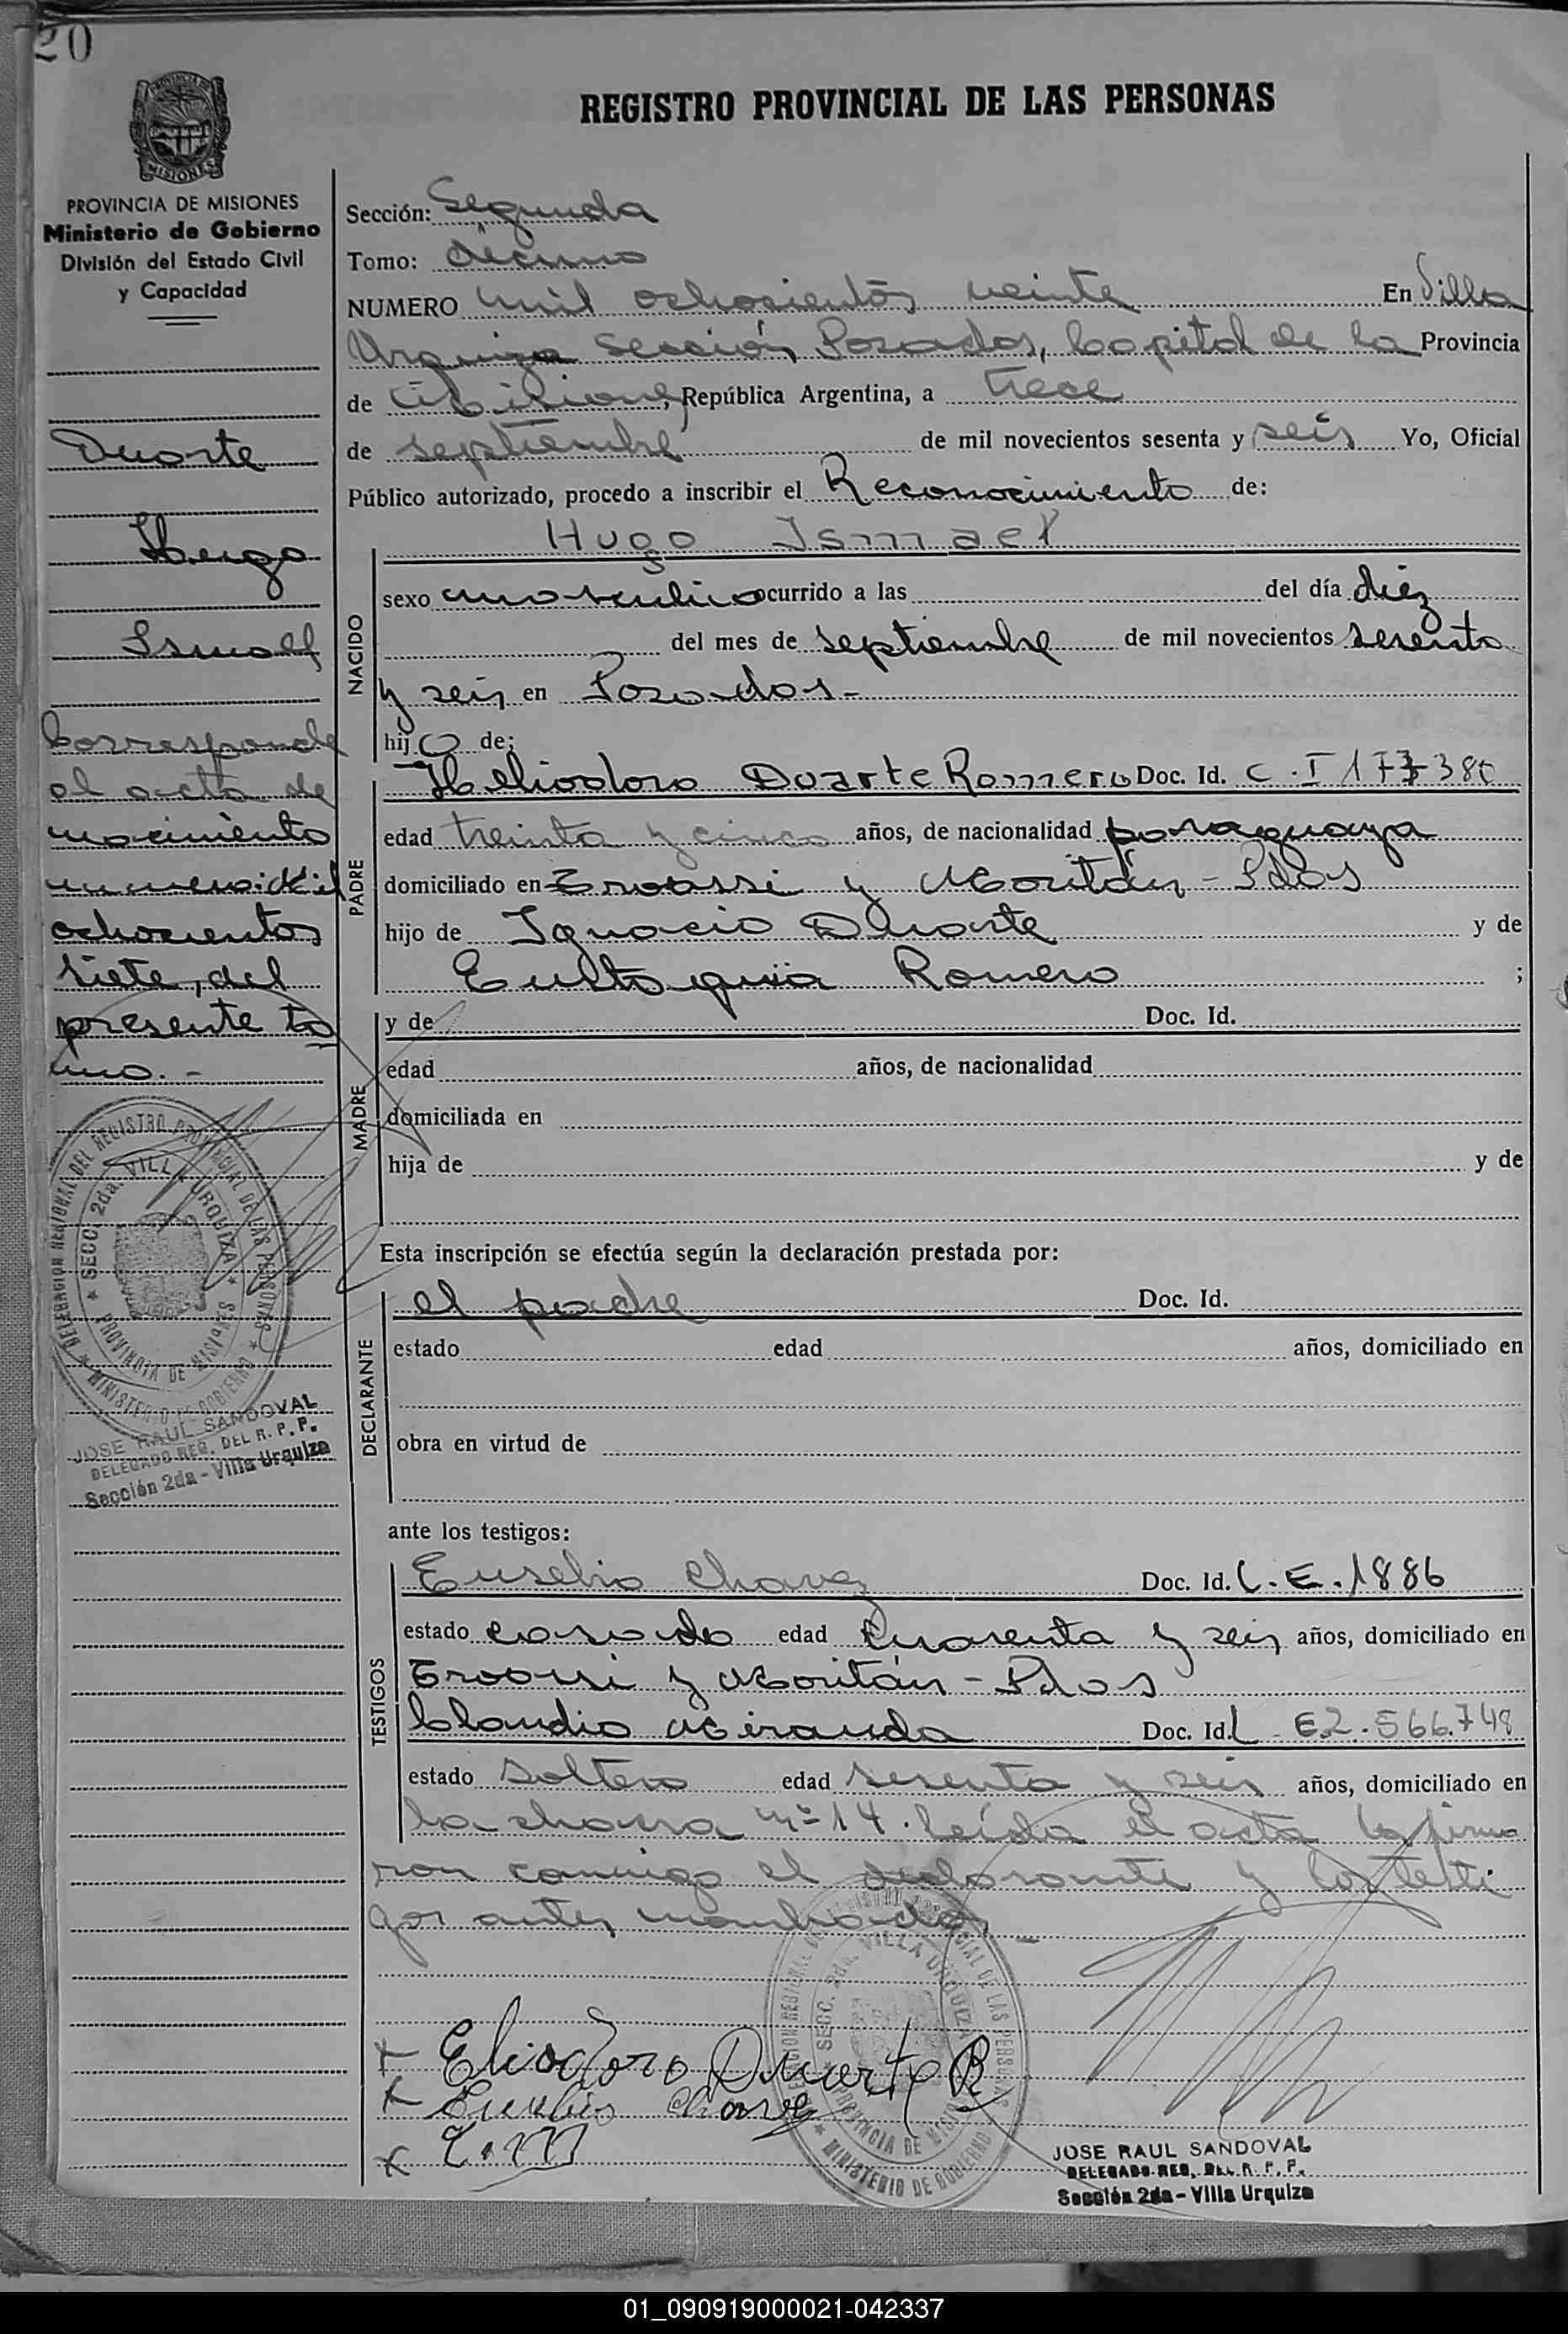 20
REGISTRO PROVINCIAL DE LAS PERSONAS
MISIONES
PROVINCIA DE MISIONES
Ministerio de Gobierno
División del Estado Civil
y Capacidad
Duarte
Hugo
Ismael
Corresponde
el acta de
nacimiento
numero: Mil
ochocientos
siete, del
presente to
mo. -
DELEGACION REGIONAL DEL REGISTRO PROVINCIAL DE LAS PERSONAS
SECC. 2da. VILLA URQUIZA
PROVINCIA DE MISIONES
MINISTERIO DE GOBIERNO
JOSE RAUL SANDOVAL
DELEGADO REG. DEL R. P. P.
Sección 2da - Villa Urquiza
Sección: Segunda
Tomo: décimo
NUMERO mil ochocientos veinte En Villa
Urquiza Sección Posadas, Capital de la Provincia
de Misiones, República Argentina, a trece
de septiembre de mil novecientos sesenta y seis Yo, Oficial
Público autorizado, procedo a inscribir el Reconocimiento de:
NACIDO
Hugo Ismael
sexo masculino ocurrido a las del día diez
del mes de septiembre de mil novecientos sesenta
y seis en Posadas-
hijo de;
PADRE
Heliodoro Duarte Romero Doc. Id. C.I
edad treinta y cinco años, de nacionalidad paraguaya
domiciliado en y - Pdas
hijo de Ignacio Duarte y de
Eustoquia Romero ;
MADRE
y de Doc. Id.
edad años, de nacionalidad
domiciliada en
hija de y de
Esta inscripción se efectúa según la declaración prestada por:
DECLARANTE
el padre Doc. Id.
estado edad años, domiciliado en
obra en virtud de
ante los testigos:
TESTIGOS
Eusebio Chavez Doc. Id. L.E. 1886
estado casado edad cuarenta y seis años, domiciliado en
y - Pdas
Claudio Miranda Doc. Id. L E 2.566.748
estado soltero edad sesenta y seis años, domiciliado en
la chacra nº 14. Leída el acta la firma
ron conmigo el declarante y los testi
gos antes nombrados -
DELEGACION REGIONAL DEL REGISTRO PROVINCIAL DE LAS PERSONAS
SECC. 2da. VILLA URQUIZA
PROVINCIA DE MISIONES
MINISTERIO DE GOBIERNO
x Eliodoro Duarte R
x Eusebio Chavez
x
JOSE RAUL SANDOVAL
DELEGADO REG. DEL R. P. P.
Sección 2da - Villa Urquiza
01_090919000021-042337